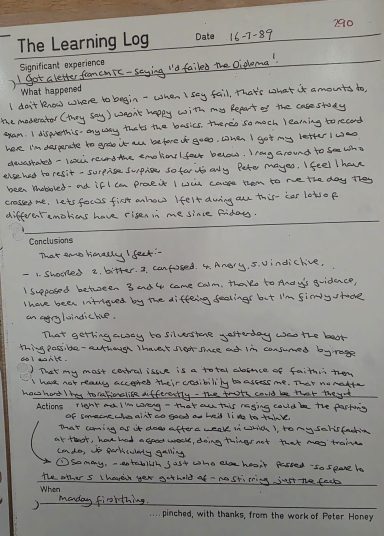 290
The Learning Log Date 16-7-89
Significant experience
I got a letter from CMTC - saying I'd failed the Diploma!
What happened
I don't know where to begin - when I say fail, that's what it amounts to,
the moderator (they say) wasn't happy with my report of the case study
exam. I dispute this - anyway thats the basics. theres so much learning to record
here I'm desperate to grab it all before it goes. When I got my letter I was
devastated - I will record the emotions I felt below. I rang around to see who
else had to resit - surprise surprise so far its only Peter Mayes. I feel I have
been knobbled - and if I can prove it I will cause them to rue the day they
crossed me. Lets focus first on how I felt during all this - cos lots of
different emotions have risen in me since Friday.
Conclusions
That emotionally I felt:-
- 1. Shocked 2. bitter. 3. Confused. 4. Angry, 5. Vindictive.
I supposed between 3 and 4 came calm. thanks to Andy's guidance,
I have been intrigued by the differing feelings but I'm firmly stuck
on angry/vindictive.
That getting away to Silverstone yesterday was the best
thing possible - although I haven't slept since and I'm consumed by rage
as I write.
That my most central issue is a total absence of faith in them
I have not really accepted their credibility to assess me. That no matter
how hard I try to rationalise differently - the truth could be that they're
Actions right and I'm wrong - that all this raging could be the posturing
of someone who aint as good as he'd like to think.
That coming as it does after a week in which I, to my satisfaction
at least, have had a good week, doing things not that many trainers
can do, is particularly galling
① So many, - establish just who else hasn't passed - so speak to
the others I haven't yet got hold of - no stirring, just the facts
When
Monday first thing.
.... pinched, with thanks, from the work of Peter Honey